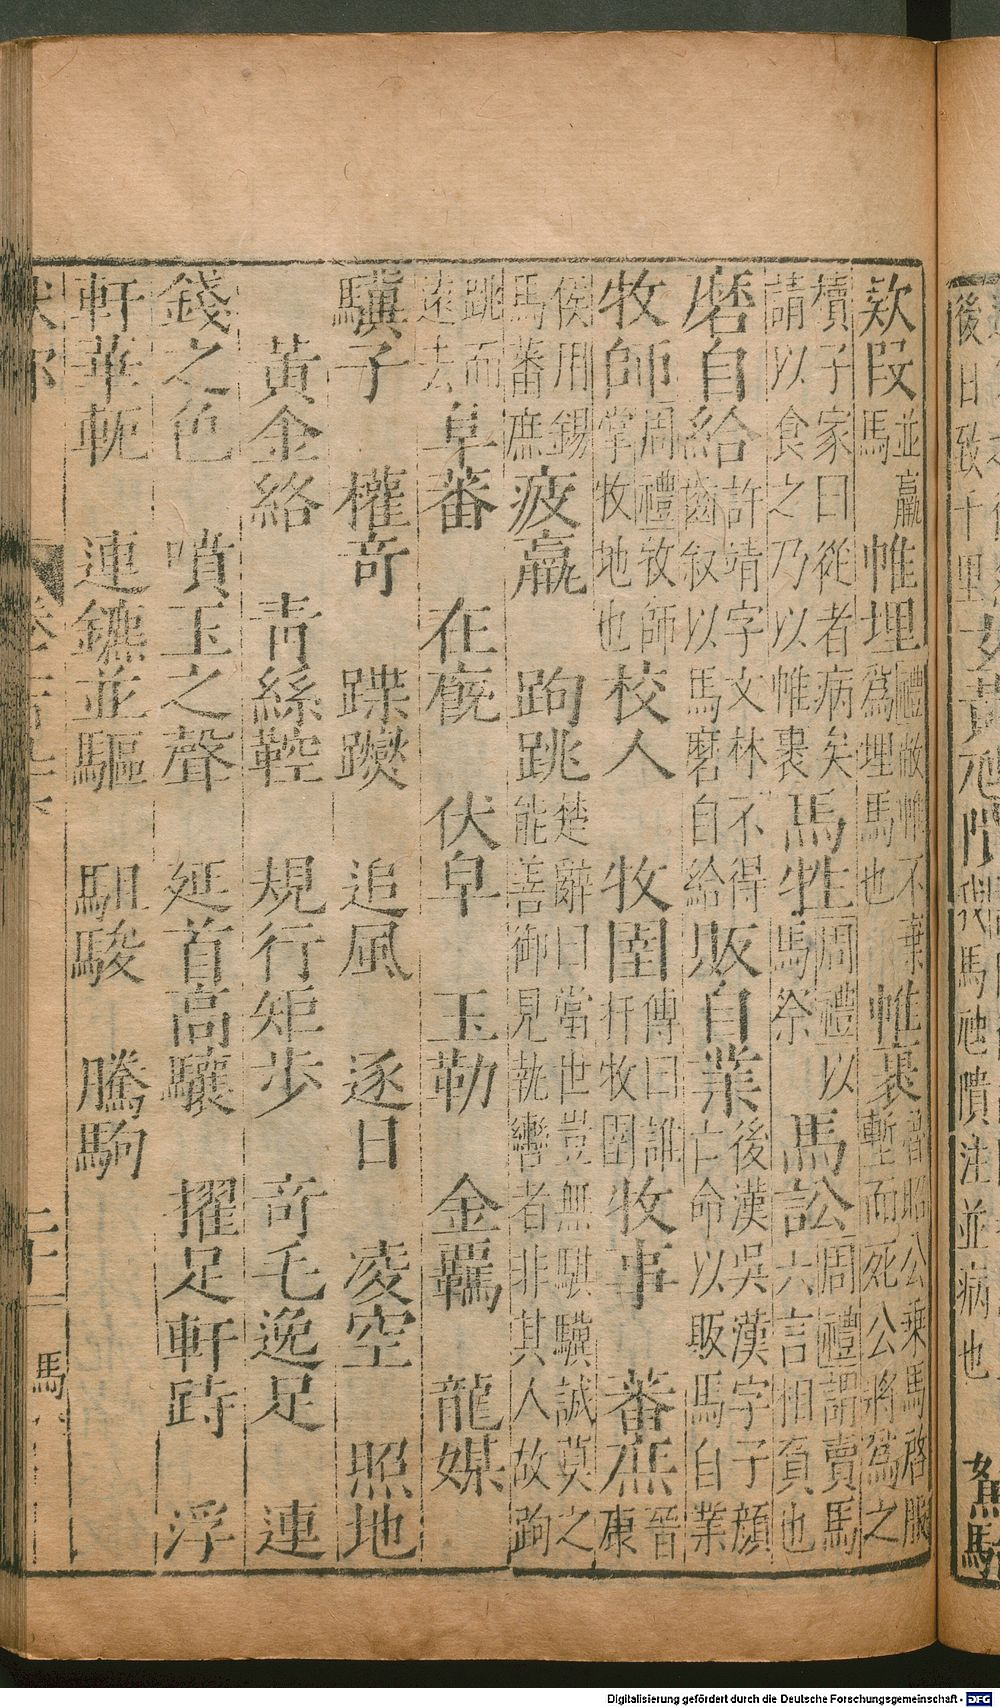 後日致千里
馬虺隤注並病也
款段並羸馬帷埋禮敝帷不棄爲埋馬也帷裹晉昭公乘馬啓服塹而死公將爲之
櫝子家曰從者病矣請以食之乃以帷裹馬牲周禮以馬祭馬訟周禮謂賣馬六言相負也
磨自給許靖字文林不得齒叙以馬磨自給販自業後漢吳漢字子顔亡命以販馬自業
牧師周禮牧師掌牧地也校人 牧圉傳曰誰扞牧圉牧事 蕃庶晉康
侯用錫馬蕃庶疲羸 跔跳楚辭曰當世豈無騏驥誠莫之能善御見執轡者非其人故跔
跳而遠去阜蕃 在廐 伏皁 玉勒 金羈 龍媒
驥子 權奇 蹀躞 追風 逐日 凌空 照地
黃金絡 青絲鞚 規行矩步 奇毛逸足 連
錢之色 噴玉之聲 延首高驤 擢足軒跱 浮
軒華軛 連鑣並驅 駔駿 騰駒
馬
Digitalisierung gefördert durch die Deutsche Forschungsgemeinschaft - DFG